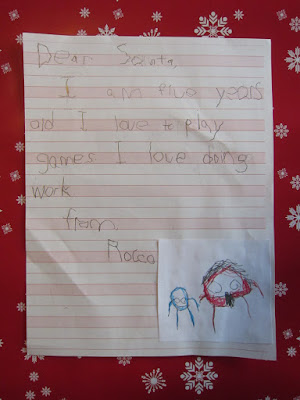 Dear Santa,
I am five years
old I love to play
games I love doing
work
from
Rocco